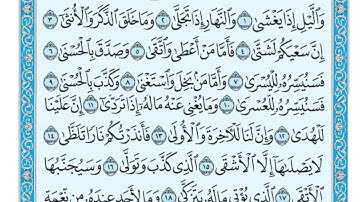 وَٱلَّيْلِ إِذَا يَغْشَىٰ ١ وَٱلنَّهَارِ إِذَا تَجَلَّىٰ ٢ وَمَا خَلَقَ ٱلذَّكَرَ وَٱلْأُنثَىٰٓ ٣
إِنَّ سَعْيَكُمْ لَشَتَّىٰ ٤ فَأَمَّا مَنْ أَعْطَىٰ وَٱتَّقَىٰ ٥ وَصَدَّقَ بِٱلْحُسْنَىٰ ٦
فَسَنُيَسِّرُهُۥ لِلْيُسْرَىٰ ٧ وَأَمَّا مَنۢ بَخِلَ وَٱسْتَغْنَىٰ ٨ وَكَذَّبَ بِٱلْحُسْنَىٰ ٩
فَسَنُيَسِّرُهُۥ لِلْعُسْرَىٰ ١٠ وَمَا يُغْنِى عَنْهُ مَالُهُۥٓ إِذَا تَرَدَّىٰٓ ١١ إِنَّ عَلَيْنَا
لَلْهُدَىٰ ١٢ وَإِنَّ لَنَا لَلْـَٔاخِرَةَ وَٱلْأُولَىٰ ١٣ فَأَنذَرْتُكُمْ نَارًا تَلَظَّىٰ ١٤
لَا يَصْلَىٰهَآ إِلَّا ٱلْأَشْقَى ١٥ ٱلَّذِى كَذَّبَ وَتَوَلَّىٰ ١٦ وَسَيُجَنَّبُهَا
ٱلْأَتْقَى ١٧ ٱلَّذِى يُؤْتِى مَالَهُۥ يَتَزَكَّىٰ ١٨ وَمَا لِأَحَدٍ عِندَهُۥ مِن نِّعْمَةٍ